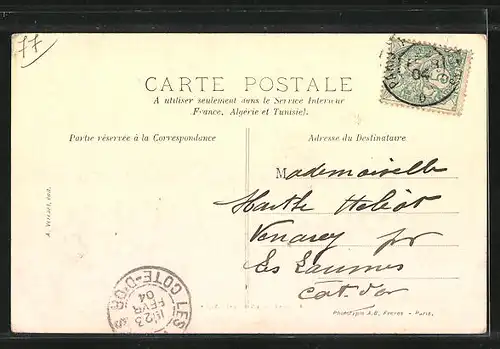 77
CARTE POSTALE
A utiliser seulement dans le Service Intérieur
(France, Algérie et Tunisie).
Partie réservée à la Correspondance
Adresse du Destinataire
Mademoiselle
Marthe Héliot
Venarey par
Les Laumes
Côt. d'or
A. Venenet, édit.
LES COTE-D'OR
23
FEVR
04
04
Phototypie A.B. Frères - Paris.